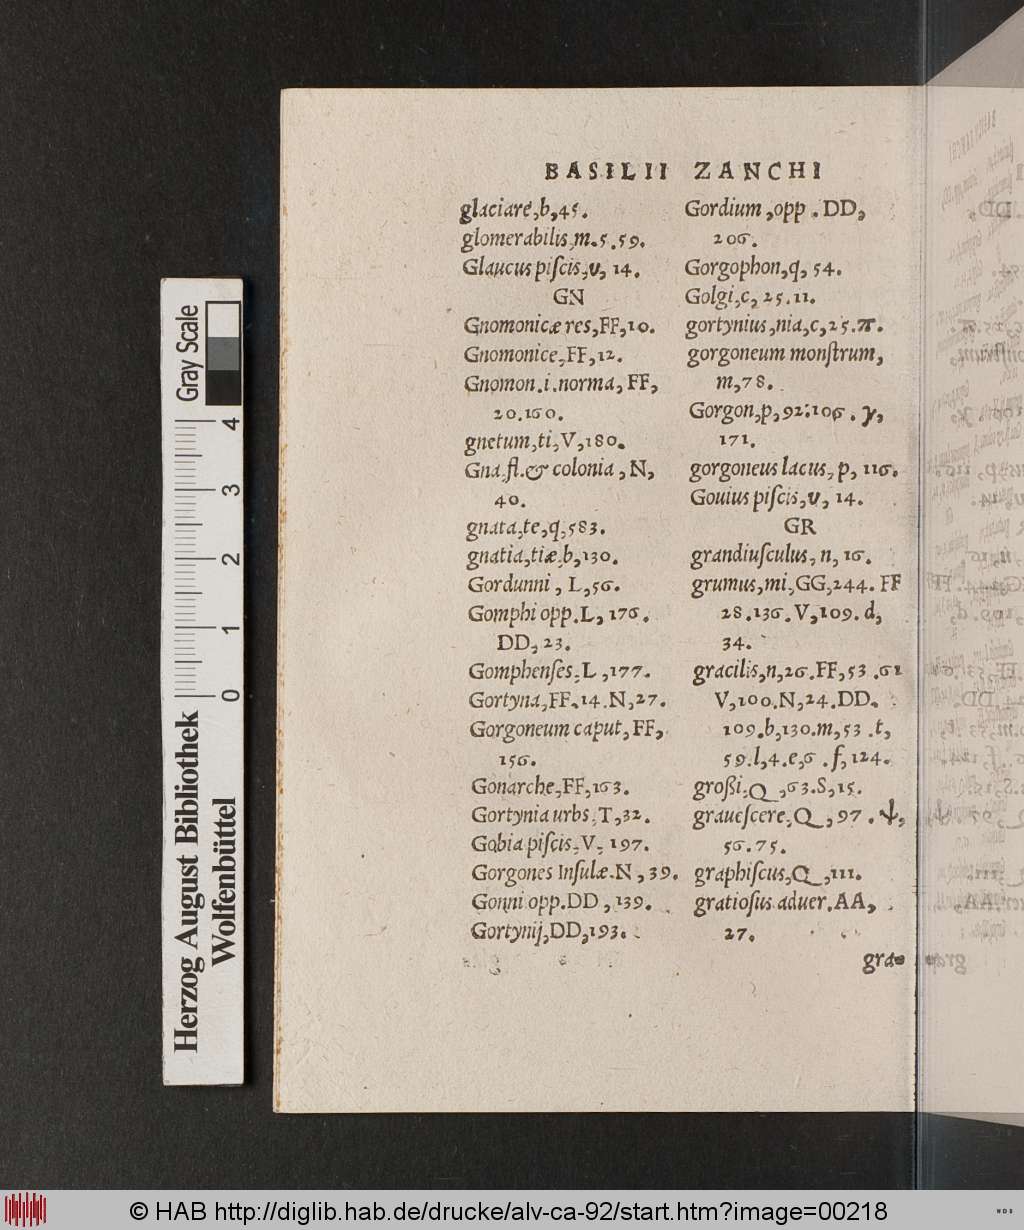 BASILII ZANCHI
glaciare,b,45.
glomerabilis,m.5.59.
Glaucus piſcis,υ, 14.
GN
Gnomonicæ res,FF,10.
Gnomonice,FF,12.
Gnomon.i.norma, FF,
20.160.
gnetum,ti,V,180.
Gna,fl.& colonia, N,
40.
gnata,te,q,583.
gnatia,tiæ,b,130.
Gordunni, L,56.
Gomphi opp.L, 176.
DD, 23.
Gomphenſes,L,177.
Gortyna,FF.14.N,27.
Gorgoneum caput,FF,
156.
Gonarche,FF,163.
Gortynia urbs,T,32.
Gobia piſcis,V, 197.
Gorgones Inſulæ.N, 39.
Gonni opp.DD, 139.
Gortynij,DD,193.
Gordium,opp. DD,
206.
Gorgophon,q, 54.
Golgi,c, 25.11.
gortynius,nia,c,25.π.
gorgoneum monſtrum,
m,78.
Gorgon,p,92:106. γ,
171.
gorgoneus lacus, p, 116.
Gouius piſcis,υ, 14.
GR
grandiuſculus, n, 16.
grumus,mi,GG,244. FF
28.136.V,109. d,
34.
gracilis,n,26.FF,53.61
V,100.N,24.DD.
109.b,130.m,53.t,
59.l,4.e,6. f,124.
großi,Q,63.S,15.
graueſcere,Q,97. ψ,
56.75.
graphiſcus,Q,111.
gratioſus aduer.AA,
27.
gra-
Gray Scale
4
3
2
1
0
Herzog August Bibliothek
Wolfenbüttel
© HAB http://diglib.hab.de/drucke/alv-ca-92/start.htm?image=00218